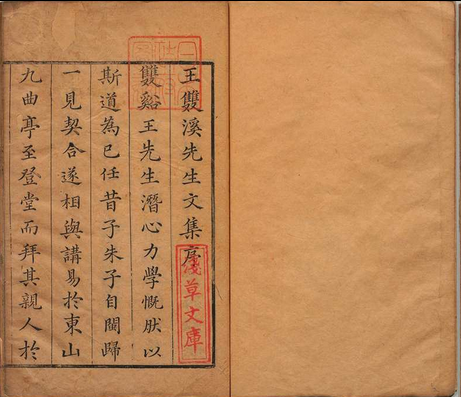 王雙溪先生文集序
雙谿王先生潛心力學慨肰以
斯道為己任昔子朱子自閩歸
一見契合遂相與講易於東山
九曲亭至登堂而拜其親人於
淺草文庫